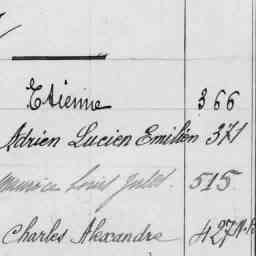 Etienne 366
Adrien Lucien Emilien 371
Maurice Louis Jules. 515
Charles Alexandre 427